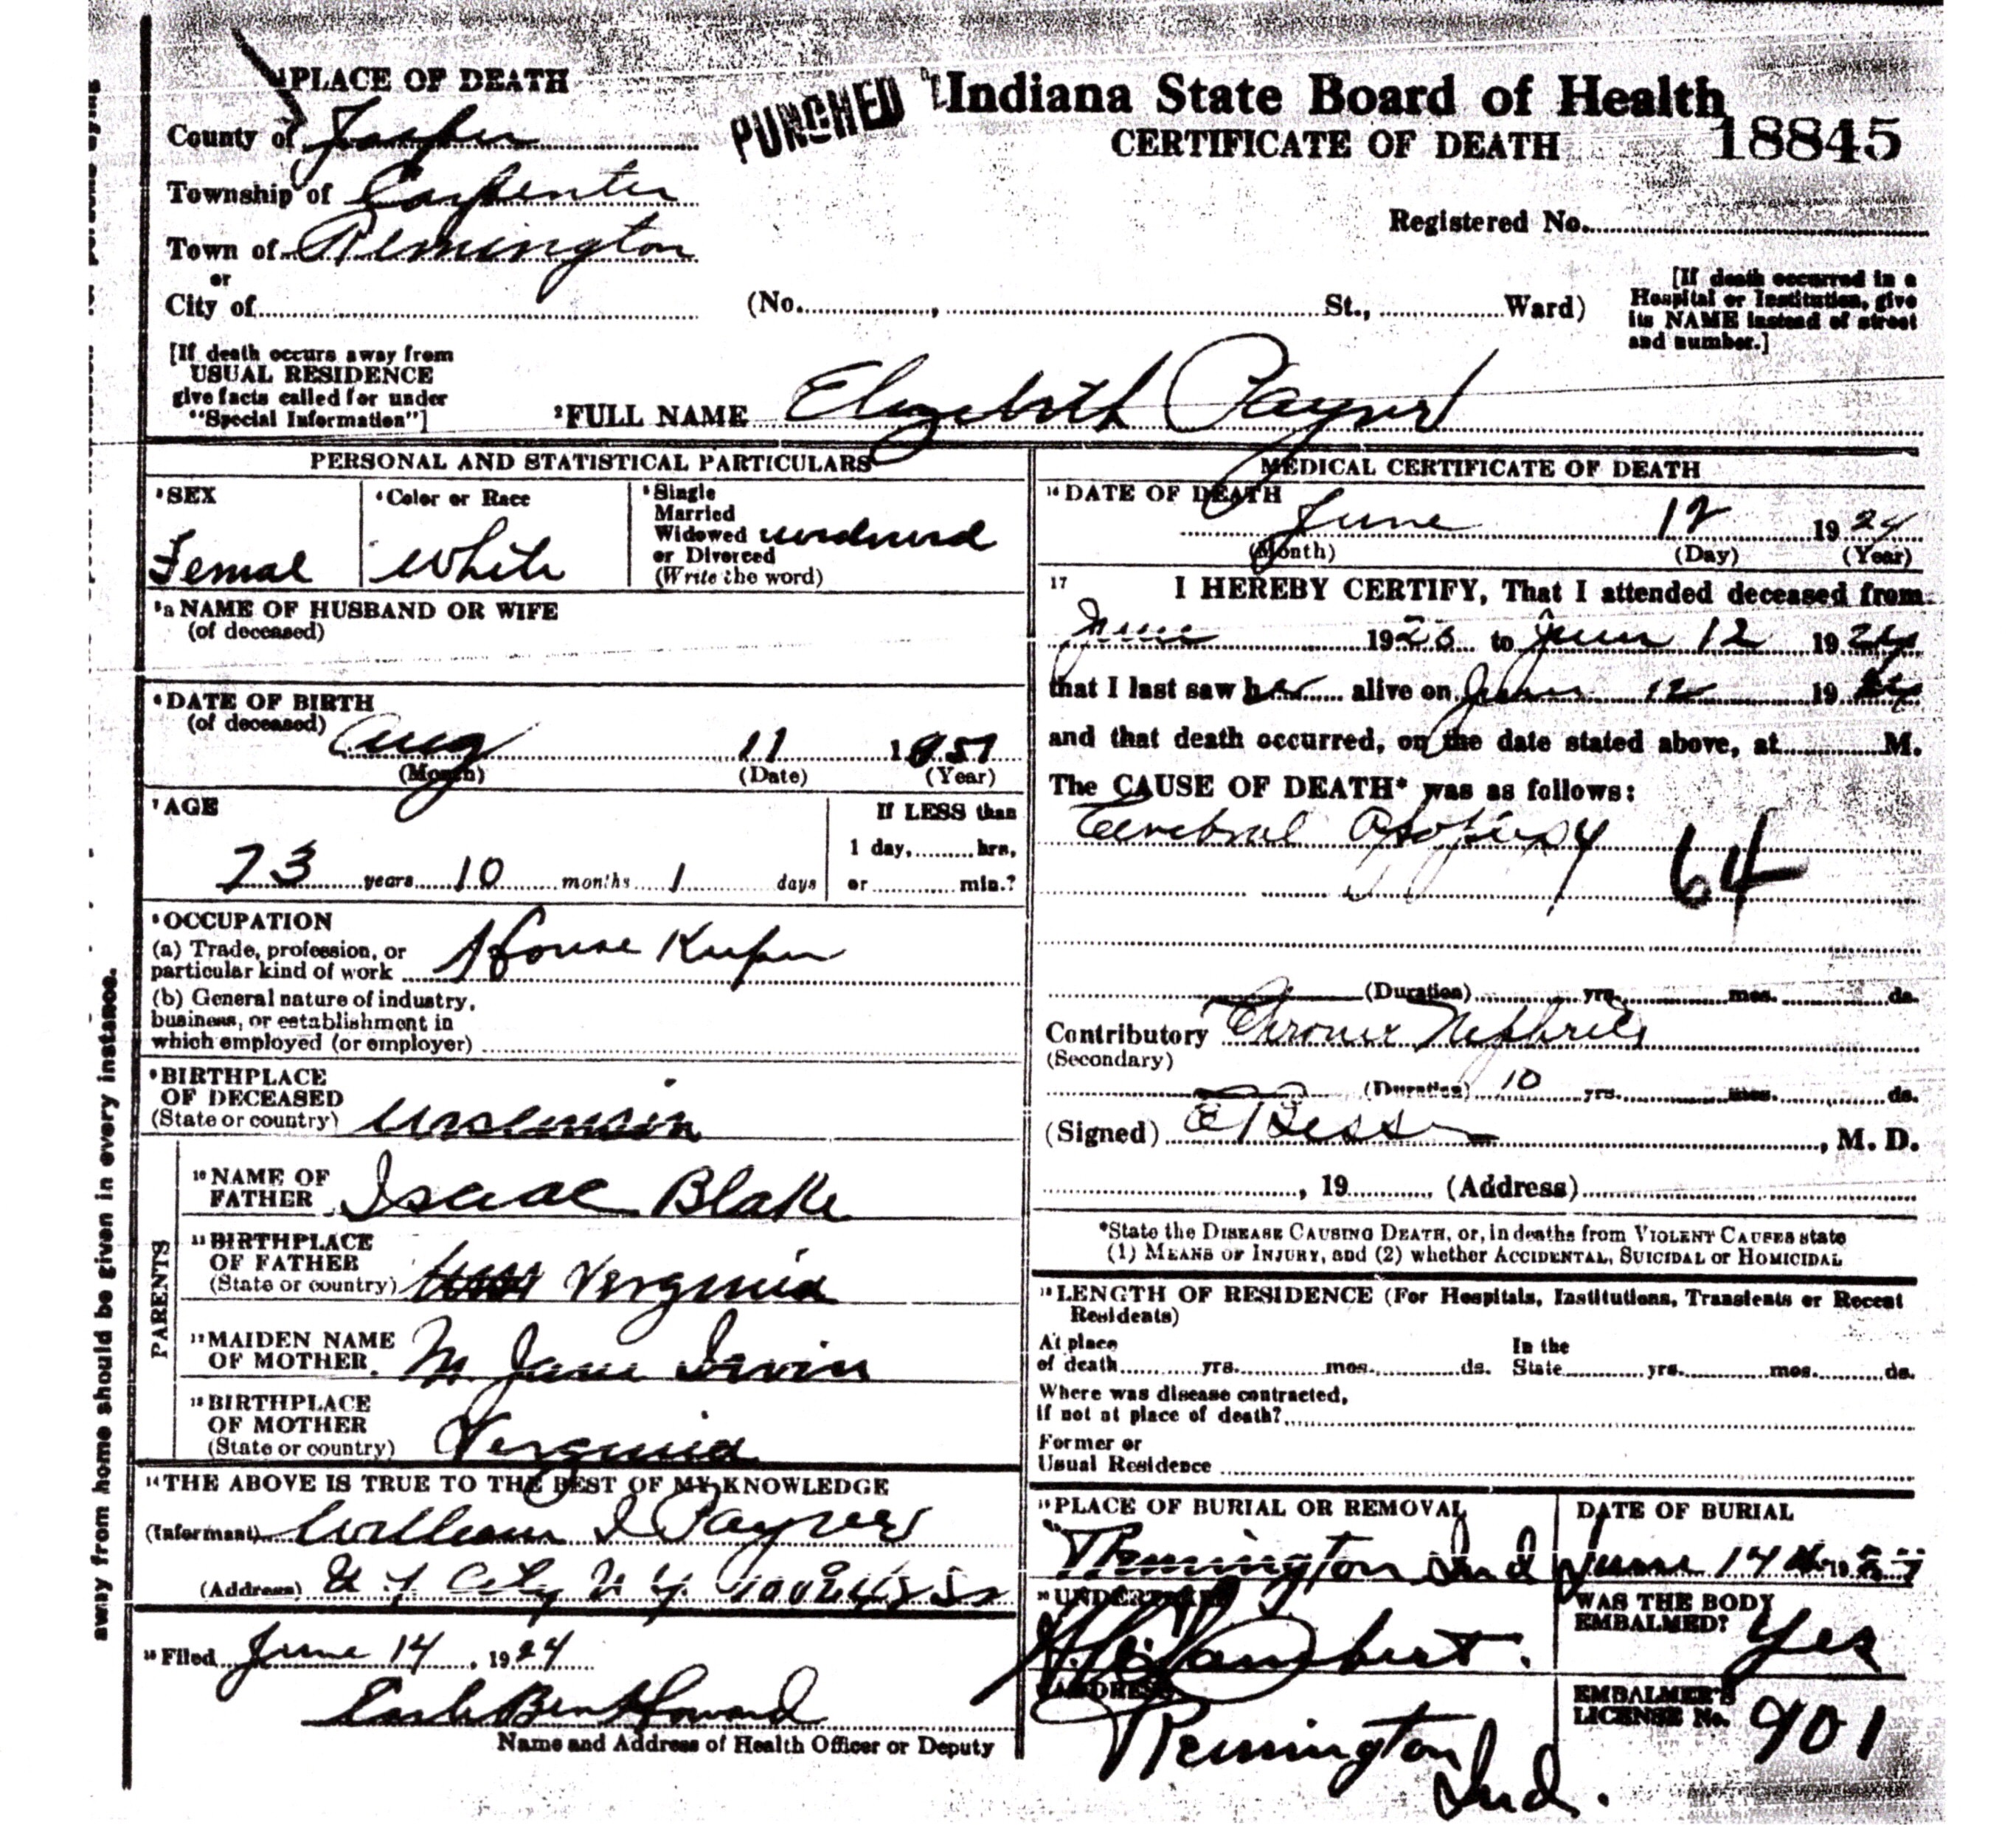 PLACE OF DEATH
County of Jasper
Township of Carpenter
Town of Remington
or
City of
PUNCHED
Indiana State Board of Health
CERTIFICATE OF DEATH
18845
Registered No.
(No. , St., Ward)
[If death occurred in a
Hospital or Institution, give
its NAME instead of street
and number.]
[If death occurs away from
USUAL RESIDENCE
give facts called for under
"Special Information"]
2 FULL NAME Elizabeth
PERSONAL AND STATISTICAL PARTICULARS
3 SEX
Femal
4 Color or Race
White
5 Single
Married
Widowed
or Divorced
(Write the word)
widowed
5a NAME OF HUSBAND OR WIFE
(of deceased)
6 DATE OF BIRTH
(of deceased)
Aug 11
(Month) (Date) (Year)
7 AGE
73 years 10 months 1 days
If LESS than
1 day, hrs,
or min.?
8 OCCUPATION
(a) Trade, profession, or
particular kind of work House Keeper
(b) General nature of industry,
business, or establishment in
which employed (or employer)
9 BIRTHPLACE
OF DECEASED
(State or country)
PARENTS
10 NAME OF
FATHER Isaac Blake
11 BIRTHPLACE
OF FATHER
(State or country) Verginia
12 MAIDEN NAME
OF MOTHER M Jane Irvin
13 BIRTHPLACE
OF MOTHER
(State or country) Verginia
14 THE ABOVE IS TRUE TO THE BEST OF MY KNOWLEDGE
(Informant) William
(Address) N Y City N Y
15 Filed June 14, 1924
Howard
Name and Address of Health Officer or Deputy
MEDICAL CERTIFICATE OF DEATH
16 DATE OF DEATH
June 12 1924
(Month) (Day) (Year)
17 I HEREBY CERTIFY, That I attended deceased from
June 19 to June 12 1924
that I last saw her alive on June 12 1924
and that death occurred, on the date stated above, at M.
The CAUSE OF DEATH* was as follows:
Cerebral Apoplexy
64
(Duration) yrs. mos. ds.
Contributory Chronic Nephritis
(Secondary)
(Duration) 10 yrs. mos. ds.
(Signed) , M. D.
, 19 (Address)
*State the DISEASE CAUSING DEATH, or, in deaths from VIOLENT CAUSES state
(1) MEANS OF INJURY, and (2) whether ACCIDENTAL, SUICIDAL or HOMICIDAL
18 LENGTH OF RESIDENCE (For Hospitals, Institutions, Transients or Recent
Residents)
At place
of death yrs. mos. ds.
In the
State yrs. mos. ds.
Where was disease contracted,
if not at place of death?
Former or
Usual Residence
19 PLACE OF BURIAL OR REMOVAL
Remington Ind
DATE OF BURIAL
June 14
20 UNDERTAKER
Lambert.
ADDRESS
Remington
Ind.
WAS THE BODY
EMBALMED? Yes
EMBALMER'S
LICENSE No. 901
away from home should be given in every instance.